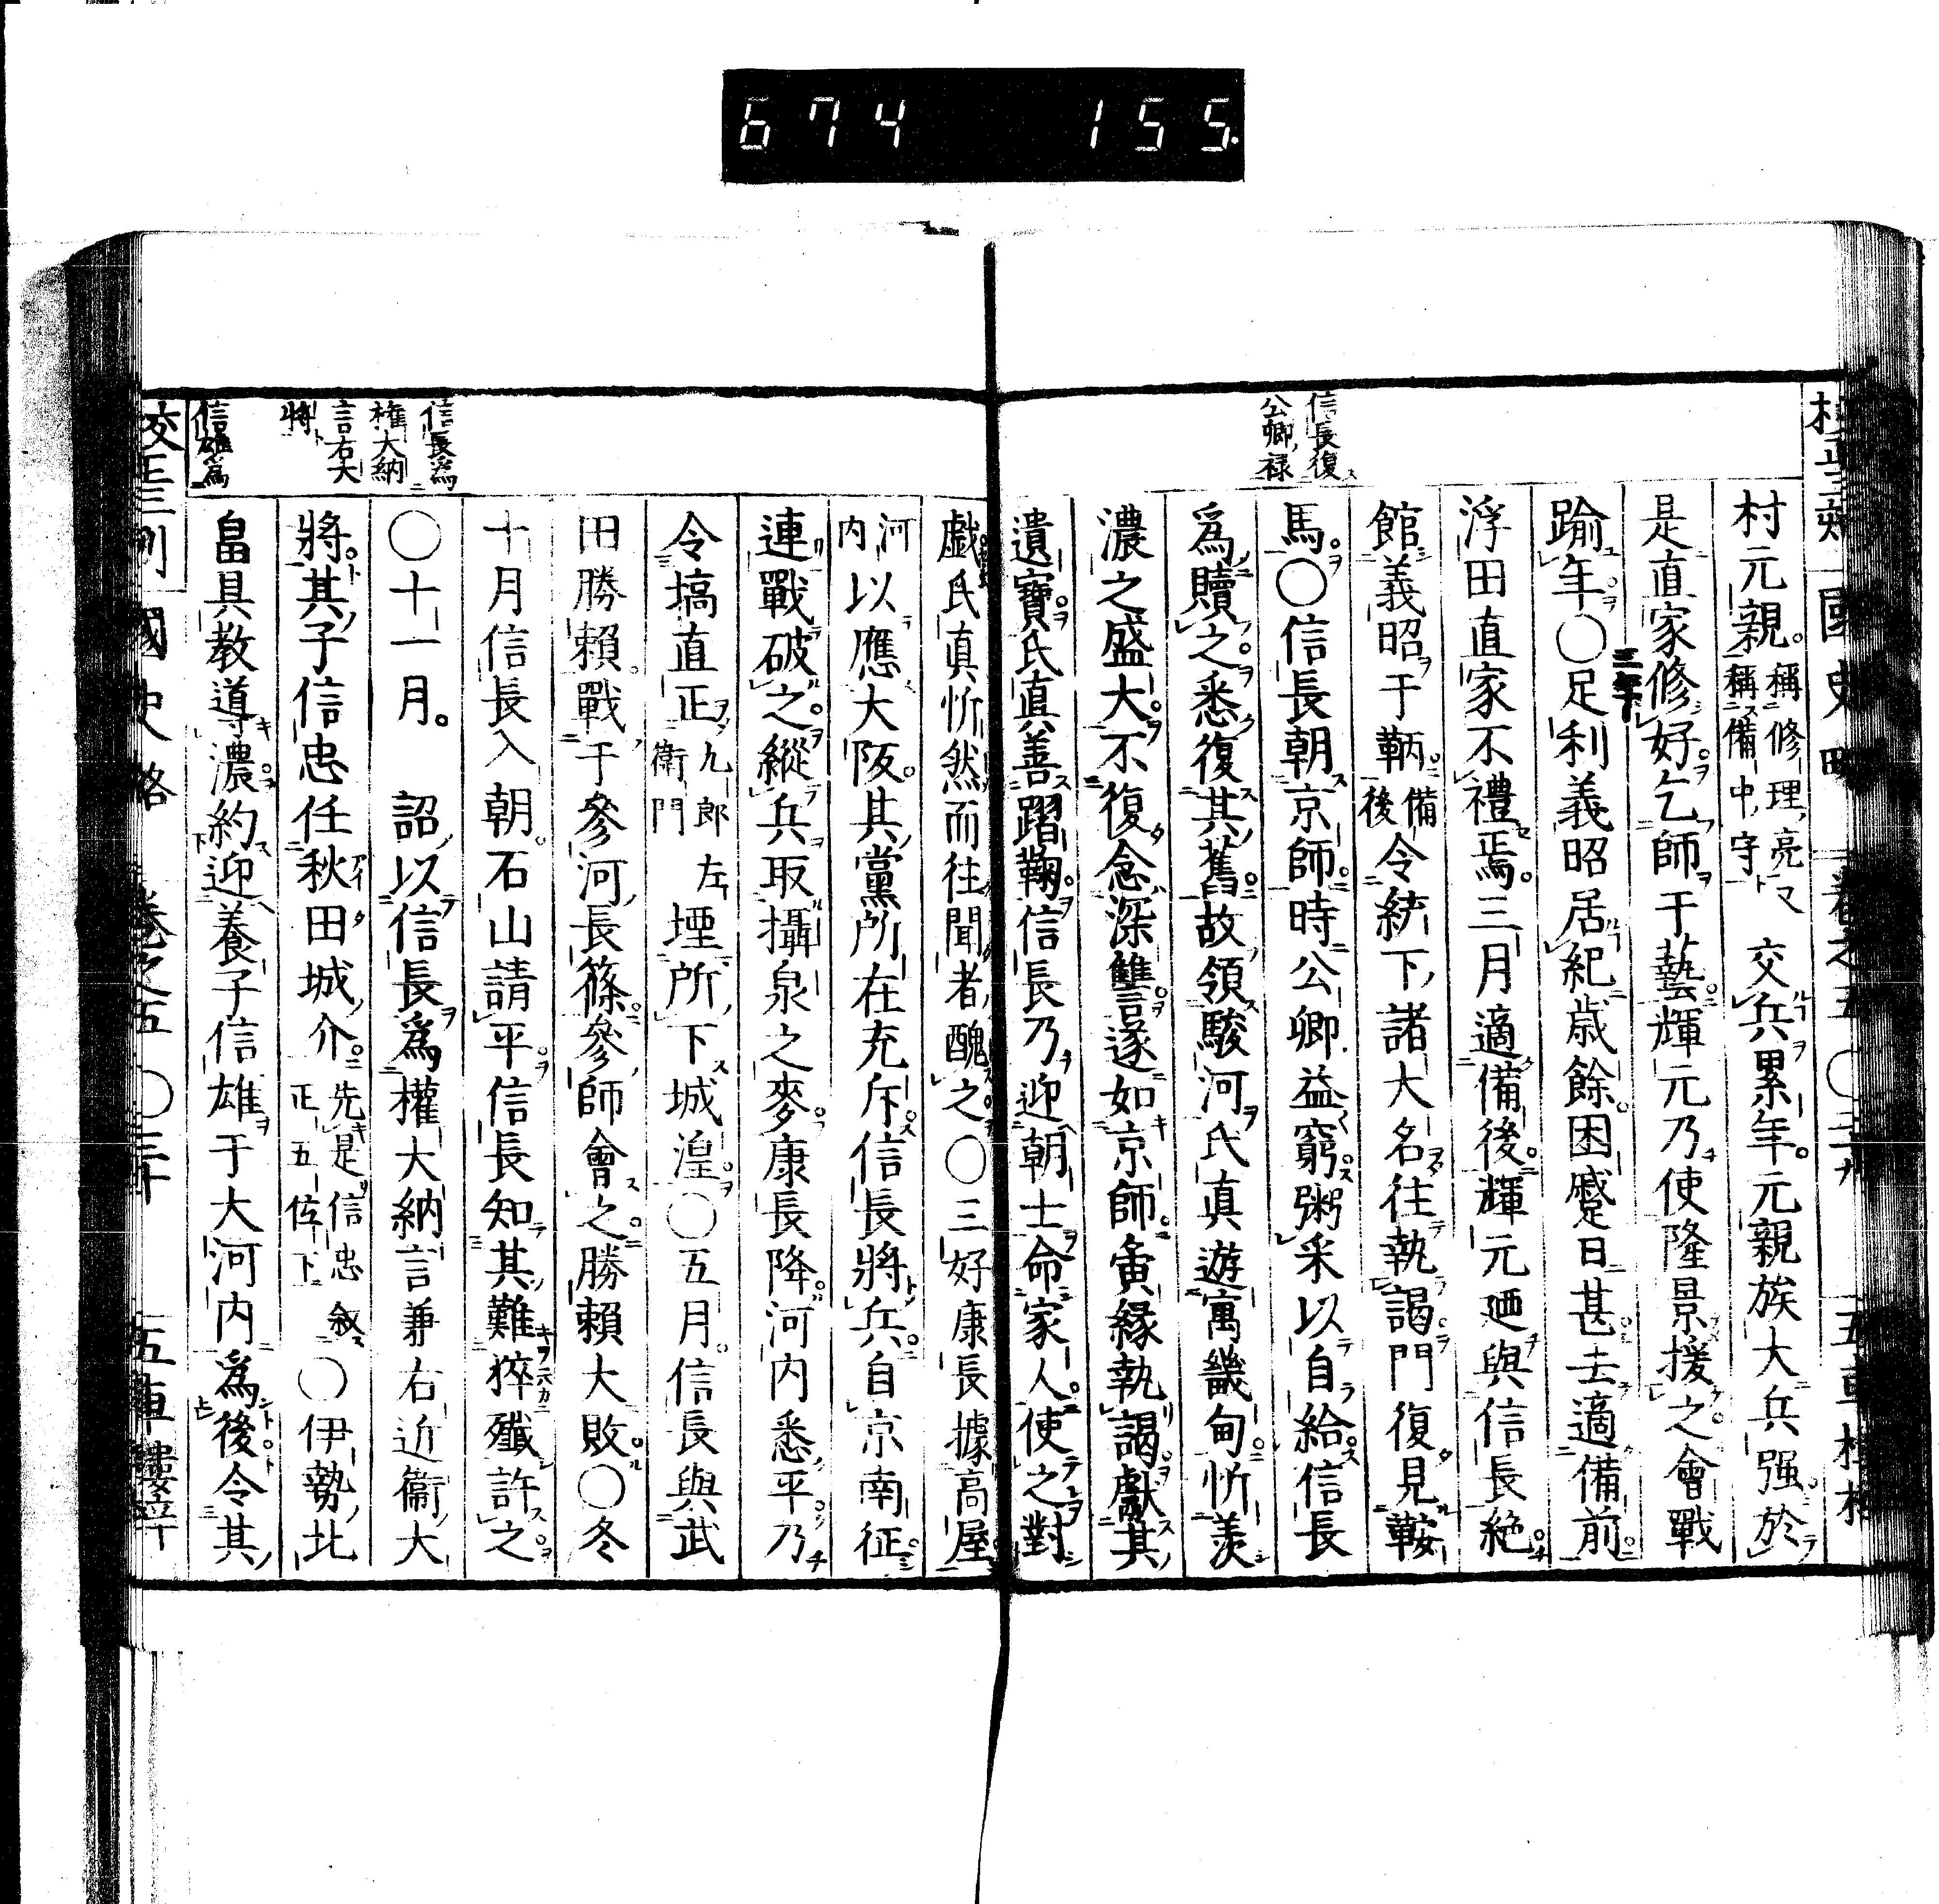 674 155
校正三刻 國史略 卷之五 〇二十九 五車樓梓
信長復
公卿祿
村元親稱修理亮稱備中守交兵累年元親族大兵强於
是直家修好乞師于藝輝元乃使隆景援之會戰
踰年〇三年足利義昭居紀歲餘困蹙日甚去適備前
浮田直家不禮焉三月適備後輝元迺與信長絶
館義昭于鞆備後令統下諸大名往執謁門復見鞍
馬〇信長朝京師時公卿益窮粥采以自給信長
爲贖之悉復其舊故領駿河氏眞遊寓畿甸忻羨
濃之盛大不復念深讐遂如京師夤緣執謁獻其
遺寶氏眞善蹋鞠信長乃迎朝士命家人使之對
戯氏眞忻然而往聞者醜之〇三好康長據高屋
河内以應大阪其黨所在充斥信長將兵自京南征
連戰破之縱兵取攝泉之麥康長降河内悉平乃
令塙直正九郎左衛門堙所下城湟〇五月信長與武
田勝賴戰于參河長篠參師會之勝賴大敗〇冬
十月信長入朝石山請平信長知其難猝殲許之
信長爲
權大納
言右大
將
〇十一月 詔以信長爲權大納言兼右近衞大
將其子信忠任秋田城介先是信忠敘正五位下〇伊勢北
信雄爲
畠具教導濃約迎養子信雄于大河内爲後令其
校正三刻 國史略 卷之五 〇三十 五車樓梓